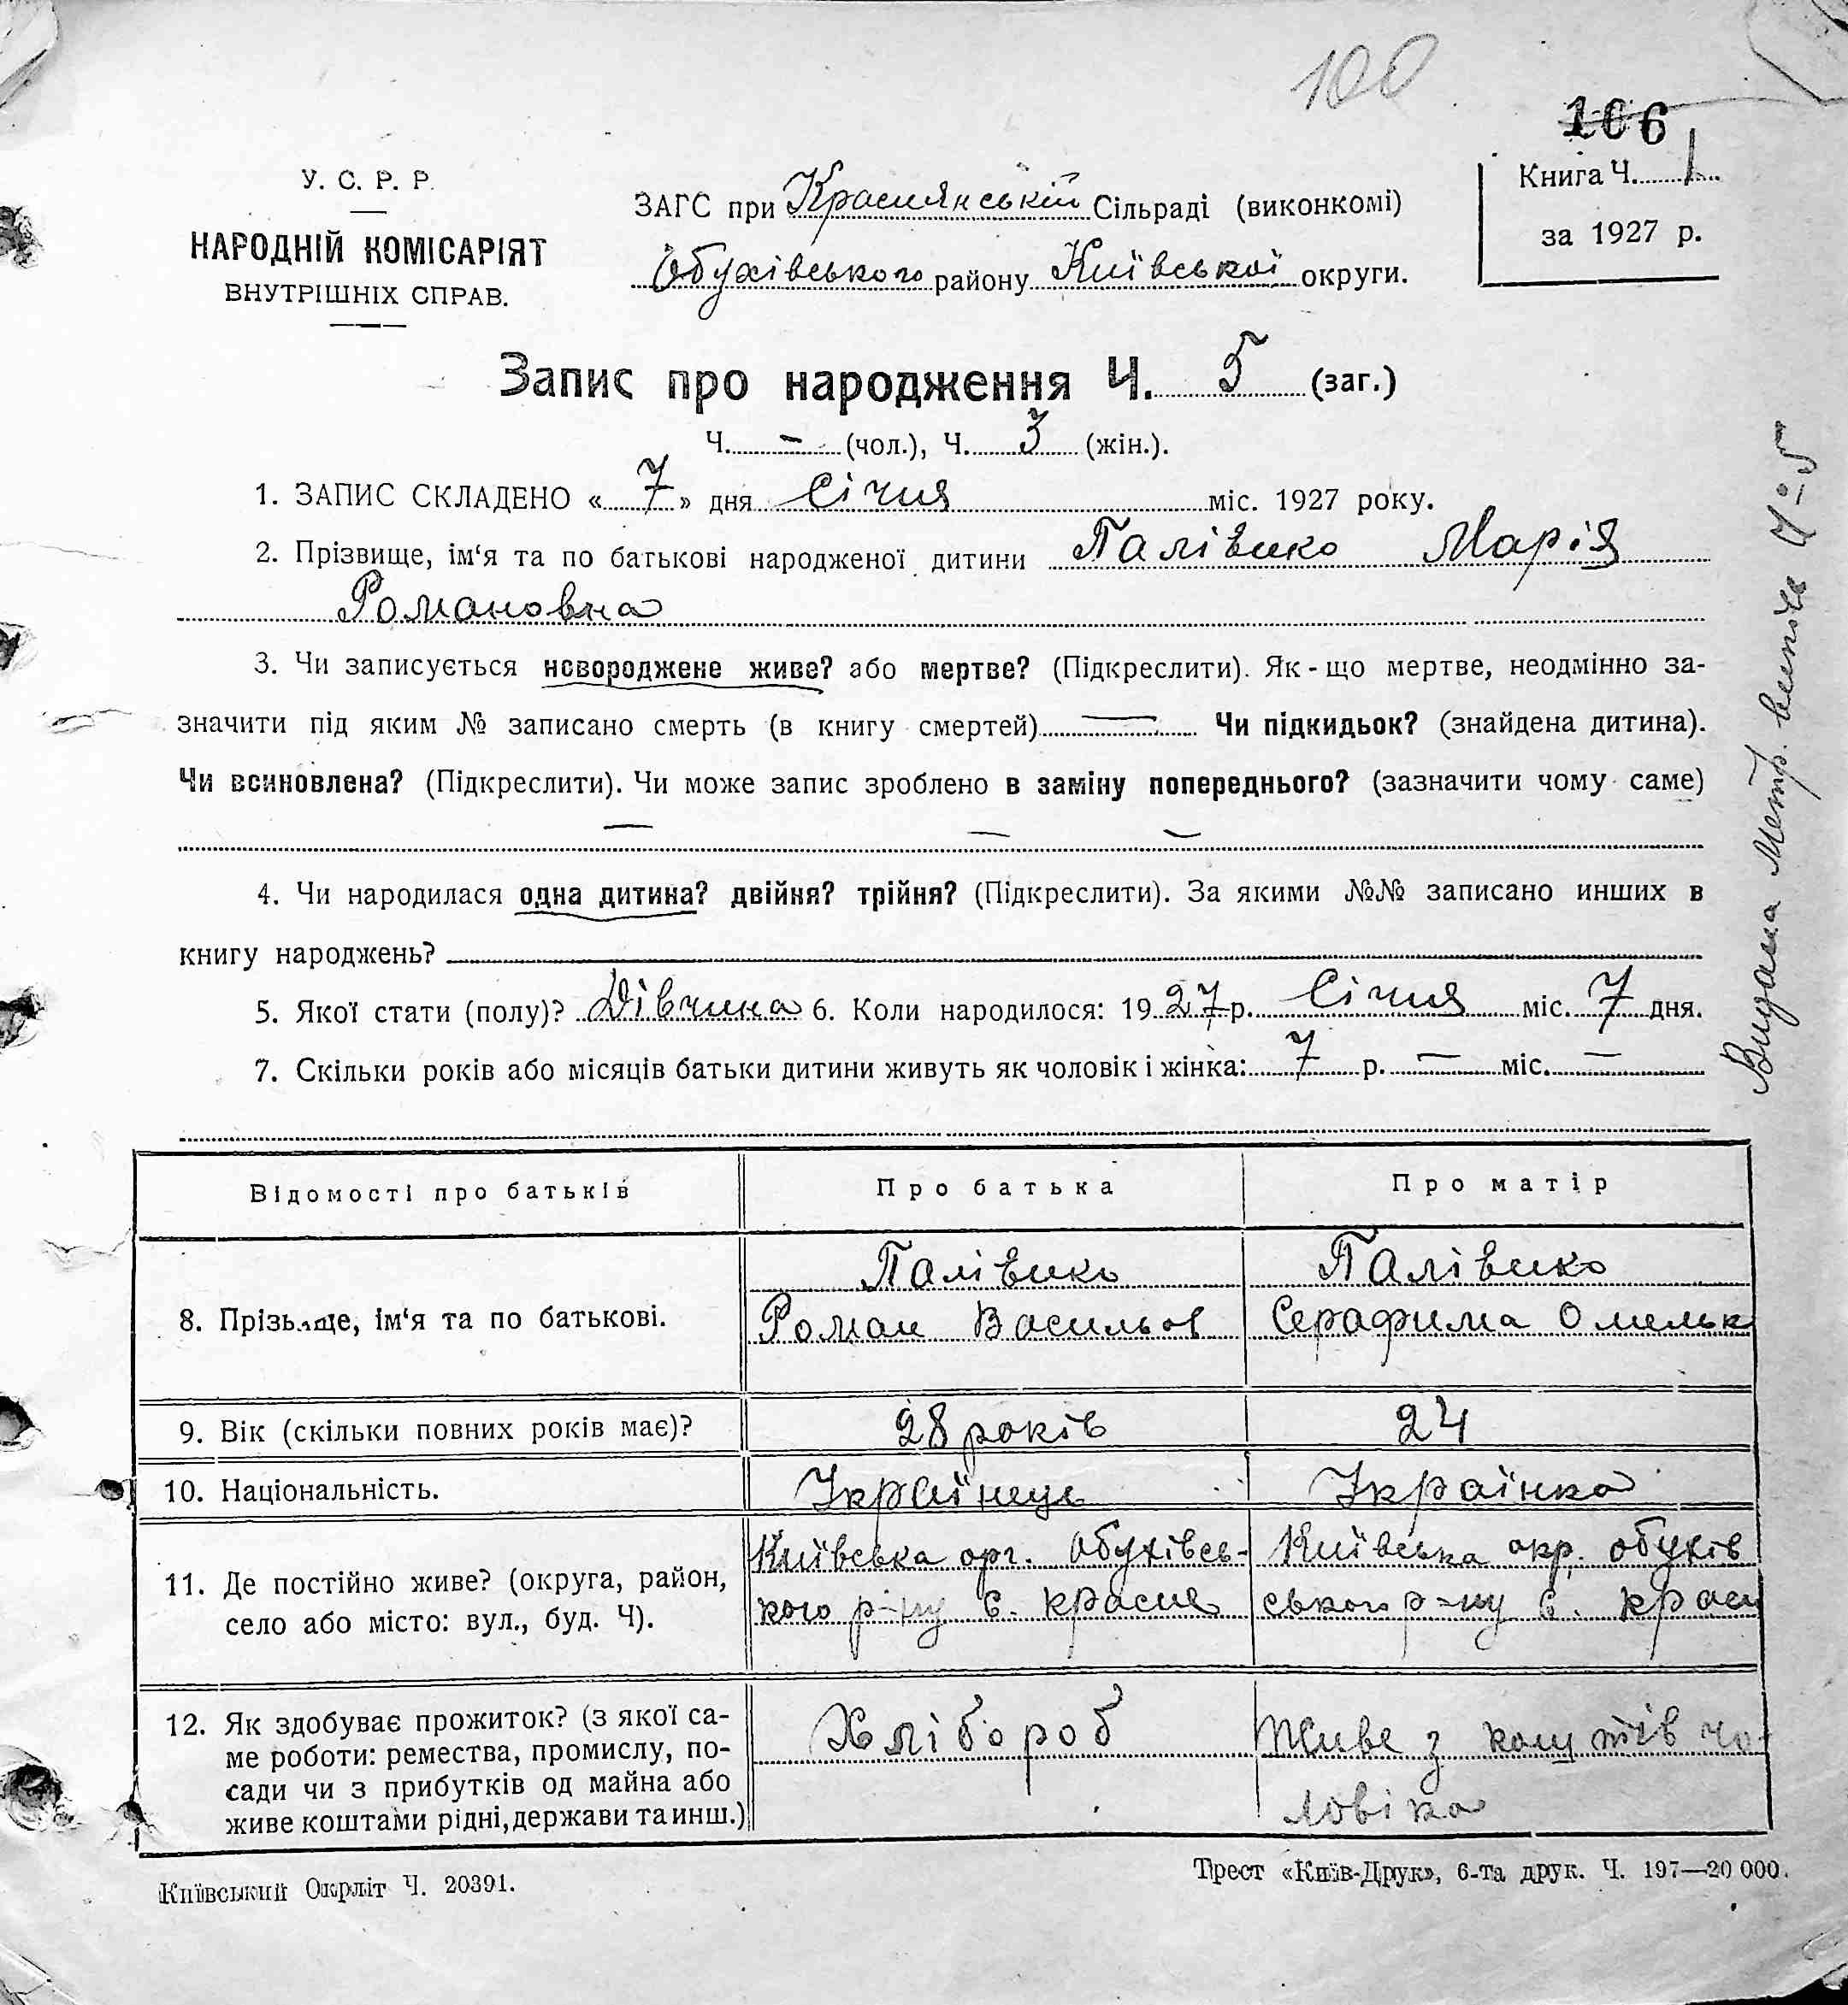 100
106
У. С. Р. Р.
НАРОДНІЙ КОМІСАРІЯТ
ВНУТРІШНІХ СПРАВ.
ЗАГС при Краснянській Сільраді (виконкомі)
Обухівського району Київської округи.
Книга Ч. 1
за 1927 р.
Запис про народження Ч. 5 (заг.)
Ч. – (чол.), Ч. 3 (жін.).
1. ЗАПИС СКЛАДЕНО « 7 » дня Січня міс. 1927 року.
2. Прізвище, ім'я та по батькові народженої дитини Палівико Марія
Романовна
3. Чи записується новороджене живе? або мертве? (Підкреслити). Як-що мертве, неодмінно за-
значити під яким № записано смерть (в книгу смертей) — Чи підкидьок? (знайдена дитина).
Чи всиновлена? (Підкреслити). Чи може запис зроблено в заміну попереднього? (зазначити чому саме)
— — —
4. Чи народилася одна дитина? двійня? трійня? (Підкреслити). За якими №№ записано инших в
книгу народжень?
5. Якої стати (полу)? Дівчина 6. Коли народилося: 1927 р. Січня міс. 7 дня.
7. Скільки років або місяців батьки дитини живуть як чоловік і жінка: 7 р. — міс. —
Видана Метр. випись Ч-5
Відомості про батьків Про батька Про матір
8. Прізьвище, ім'я та по батькові.
Палівико
Роман Васильов
Палівико
Серафима Омельк
9. Вік (скільки повних років має)? 28 років 24
10. Національність. Українець Українка
11. Де постійно живе? (округа, район,
село або місто: вул., буд. Ч).
Київська орг. Обухівсь-
кого р-ну с. красне
Київська окр. обухів
ського р-ну с. красн
12. Як здобуває прожиток? (з якої са-
ме роботи: ремества, промислу, по-
сади чи з прибутків од майна або
живе коштами рідні, держави та инш.)
Хлібороб
Живе з коштів чо-
ловіка
Київський Окрліт Ч. 20391.
Трест «Київ-Друк», 6-та друк. Ч. 197—20 000.